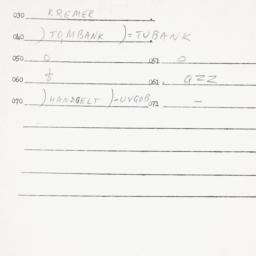 030 KREMER
040 )TOMBANK )=TUBANK
050 0 051 0
060 061. azz
070 )HANDGELT )-UVGOB 071 -